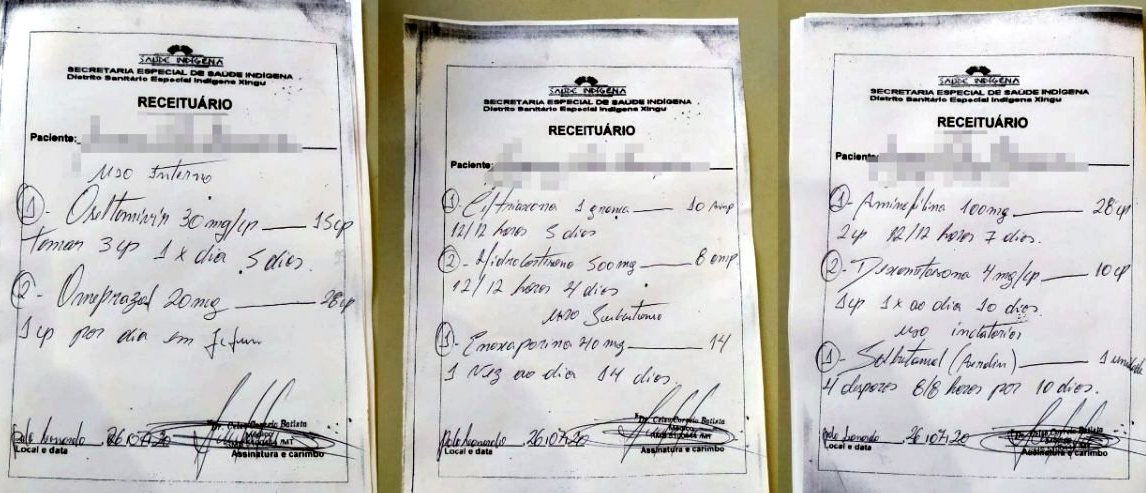 SAÚDE INDÍGENA
SECRETARIA ESPECIAL DE SAÚDE INDÍGENA
Distrito Sanitário Especial Indígena Xingu
RECEITUÁRIO
Paciente:
uso Interno
1- Oseltamivir 30mg/cp 15cp
tomar 3cp 1x dia 5 dias.
2- Omeprazol 20mg 28cp
1cp por dia em jejum
Dr. Celso Correia Batista
Médico
Polo Leonardo 26/07/20
Local e data Assinatura e carimbo
SAÚDE INDÍGENA
SECRETARIA ESPECIAL DE SAÚDE INDÍGENA
Distrito Sanitário Especial Indígena Xingu
RECEITUÁRIO
Paciente:
1- Ceftriaxona 1 grama 10 Amp
12/12 horas 5 dias
2- Hidrocortisona 500mg 8 amp
12/12 horas 4 dias
uso Subcutâneo
1- Enoxaparina 40mg 14
1 vez ao dia 14 dias.
Dr. Celso Correia Batista
Polo Leonardo 26/07/20
Local e data Assinatura e carimbo
SAÚDE INDÍGENA
SECRETARIA ESPECIAL DE SAÚDE INDÍGENA
Distrito Sanitário Especial Indígena Xingu
RECEITUÁRIO
Paciente:
1- Aminofilina 100mg 28cp
2cp 12/12 horas 7 dias.
2- Dexametasona 4mg/cp 10cp
1cp 1x ao dia 10 dias.
uso inalatório
1- Salbutamol (Aerolin) 1 unidade
4 disparos 8/8 horas por 10 dias.
Dr. Celso Correia Batista
Polo Leonardo 26/07/20
Local e data Assinatura e carimbo